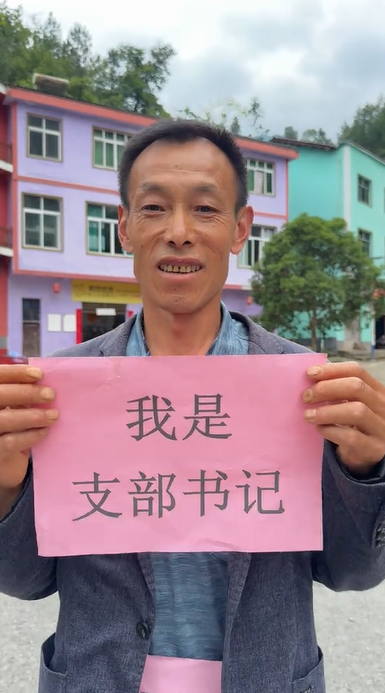 我是
支部书记